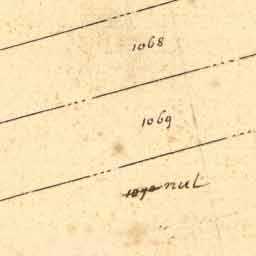 1068
1069
1070 nul